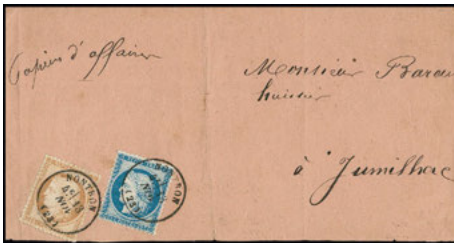 Papiers d'affaires
Monsieur Bareau
huissier
à Jumilhac
NONTRON
NOV
(23)
NONTRON
NOV
(23)